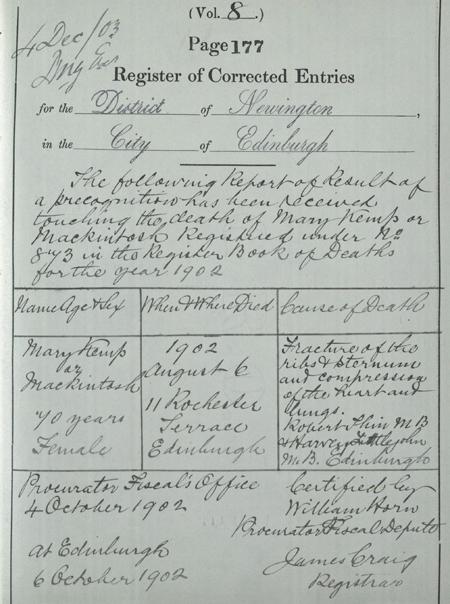 (Vol. 8.)
4 Dec/03
Page 177
Register of Corrected Entries
for the District of Newington,
in the City of Edinburgh
The following Report of Result of
a precognition has been received
touching the death of Mary Kemp or
Mackintosh Registered under No
873 in the Register Book of Deaths
for the year 1902
Name Age & Sex
Mary Kemp
or
Mackintosh
70 years
Female
When & Where Died
1902
August 6
11 Rochester
Terrace
Edinburgh
Cause of Death
Fracture of the
ribs & sternum
and compression
of the heart and
lungs.
Robert Thin M B
& Harvey Littlejohn
M.B. Edinburgh
Procurator Fiscal's Office
4 October 1902
at Edinburgh
6 October 1902
Certified by
William Horn
Procurator Fiscal Depute
James Craig
Registrar